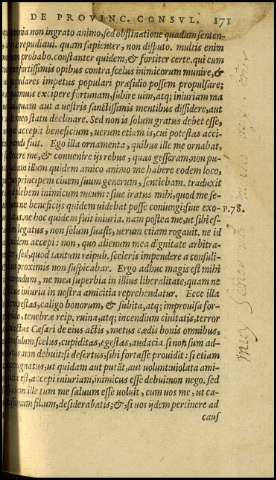 DE PROVINC. CONSVL. 171
non ingrato animo, sed obstinatione quadam senten-
repudiaui. quam sapienter, non disputo. multis enim
probabo. constanter quidem, & fortiter certe. qui cum
fortissimis opibus contra scelus inimicorum munire, &
impetus populari præsidio possem propulsare;
excipere fortunam, subire uim, atq; iniuriam
aut a uestris sanctissimis mentibus dissidere, aut
statu declinare. Sed non is solum gratus debet esse,
accepit beneficium, uerum etiam is, cui potestas acci-
fuit. Ego illa ornamenta, quibus ille me ornabat,
me, & conuenire ijs rebus, quas gesseram, non pu-
illum quidem amico animo me habere eodem loco,
principem ciuem suum generum, sentiebam. traduxit
inimicum meum: siue iratus mihi, quod me se-
ne beneficijs quidem uidebat posse coniungi: siue exo- p. 78.
ne hoc quidem fuit iniuria. nam postea me, ut sibi es-
legatus, non solum suasit, uerum etiam rogauit. ne id
accepi: non, quo alienum mea dignitate arbitra-
sed, quod tantum reipub. sceleris impendere a consuli-
proximis non suspicabar. Ergo adhuc magis est mihi
ne mea superbia in illius liberalitate, quam ne
iniuria in nostra amicitia reprehendatur. Ecce illa
caligo bonorum, & subita, atq; improuisa for-
tenebræ reip. ruina, atq; incendium ciuitatis, terror
Cæsari de eius actis, metus cædis bonis omnibus,
scelus, cupiditas, egestas, audacia. si non sum ad-
non debuit: si desertus, sibi fortasse prouidit: si etiam
ut quidam aut putāt, aut uolunt, uiolata ami-
accepi iniuriam, inimicus esse debui: non nego. sed
ille tum me saluum esse uoluit, cum uos me, ut ca-
filium, desiderabatis; & si uos ijdem pertinere ad
caus